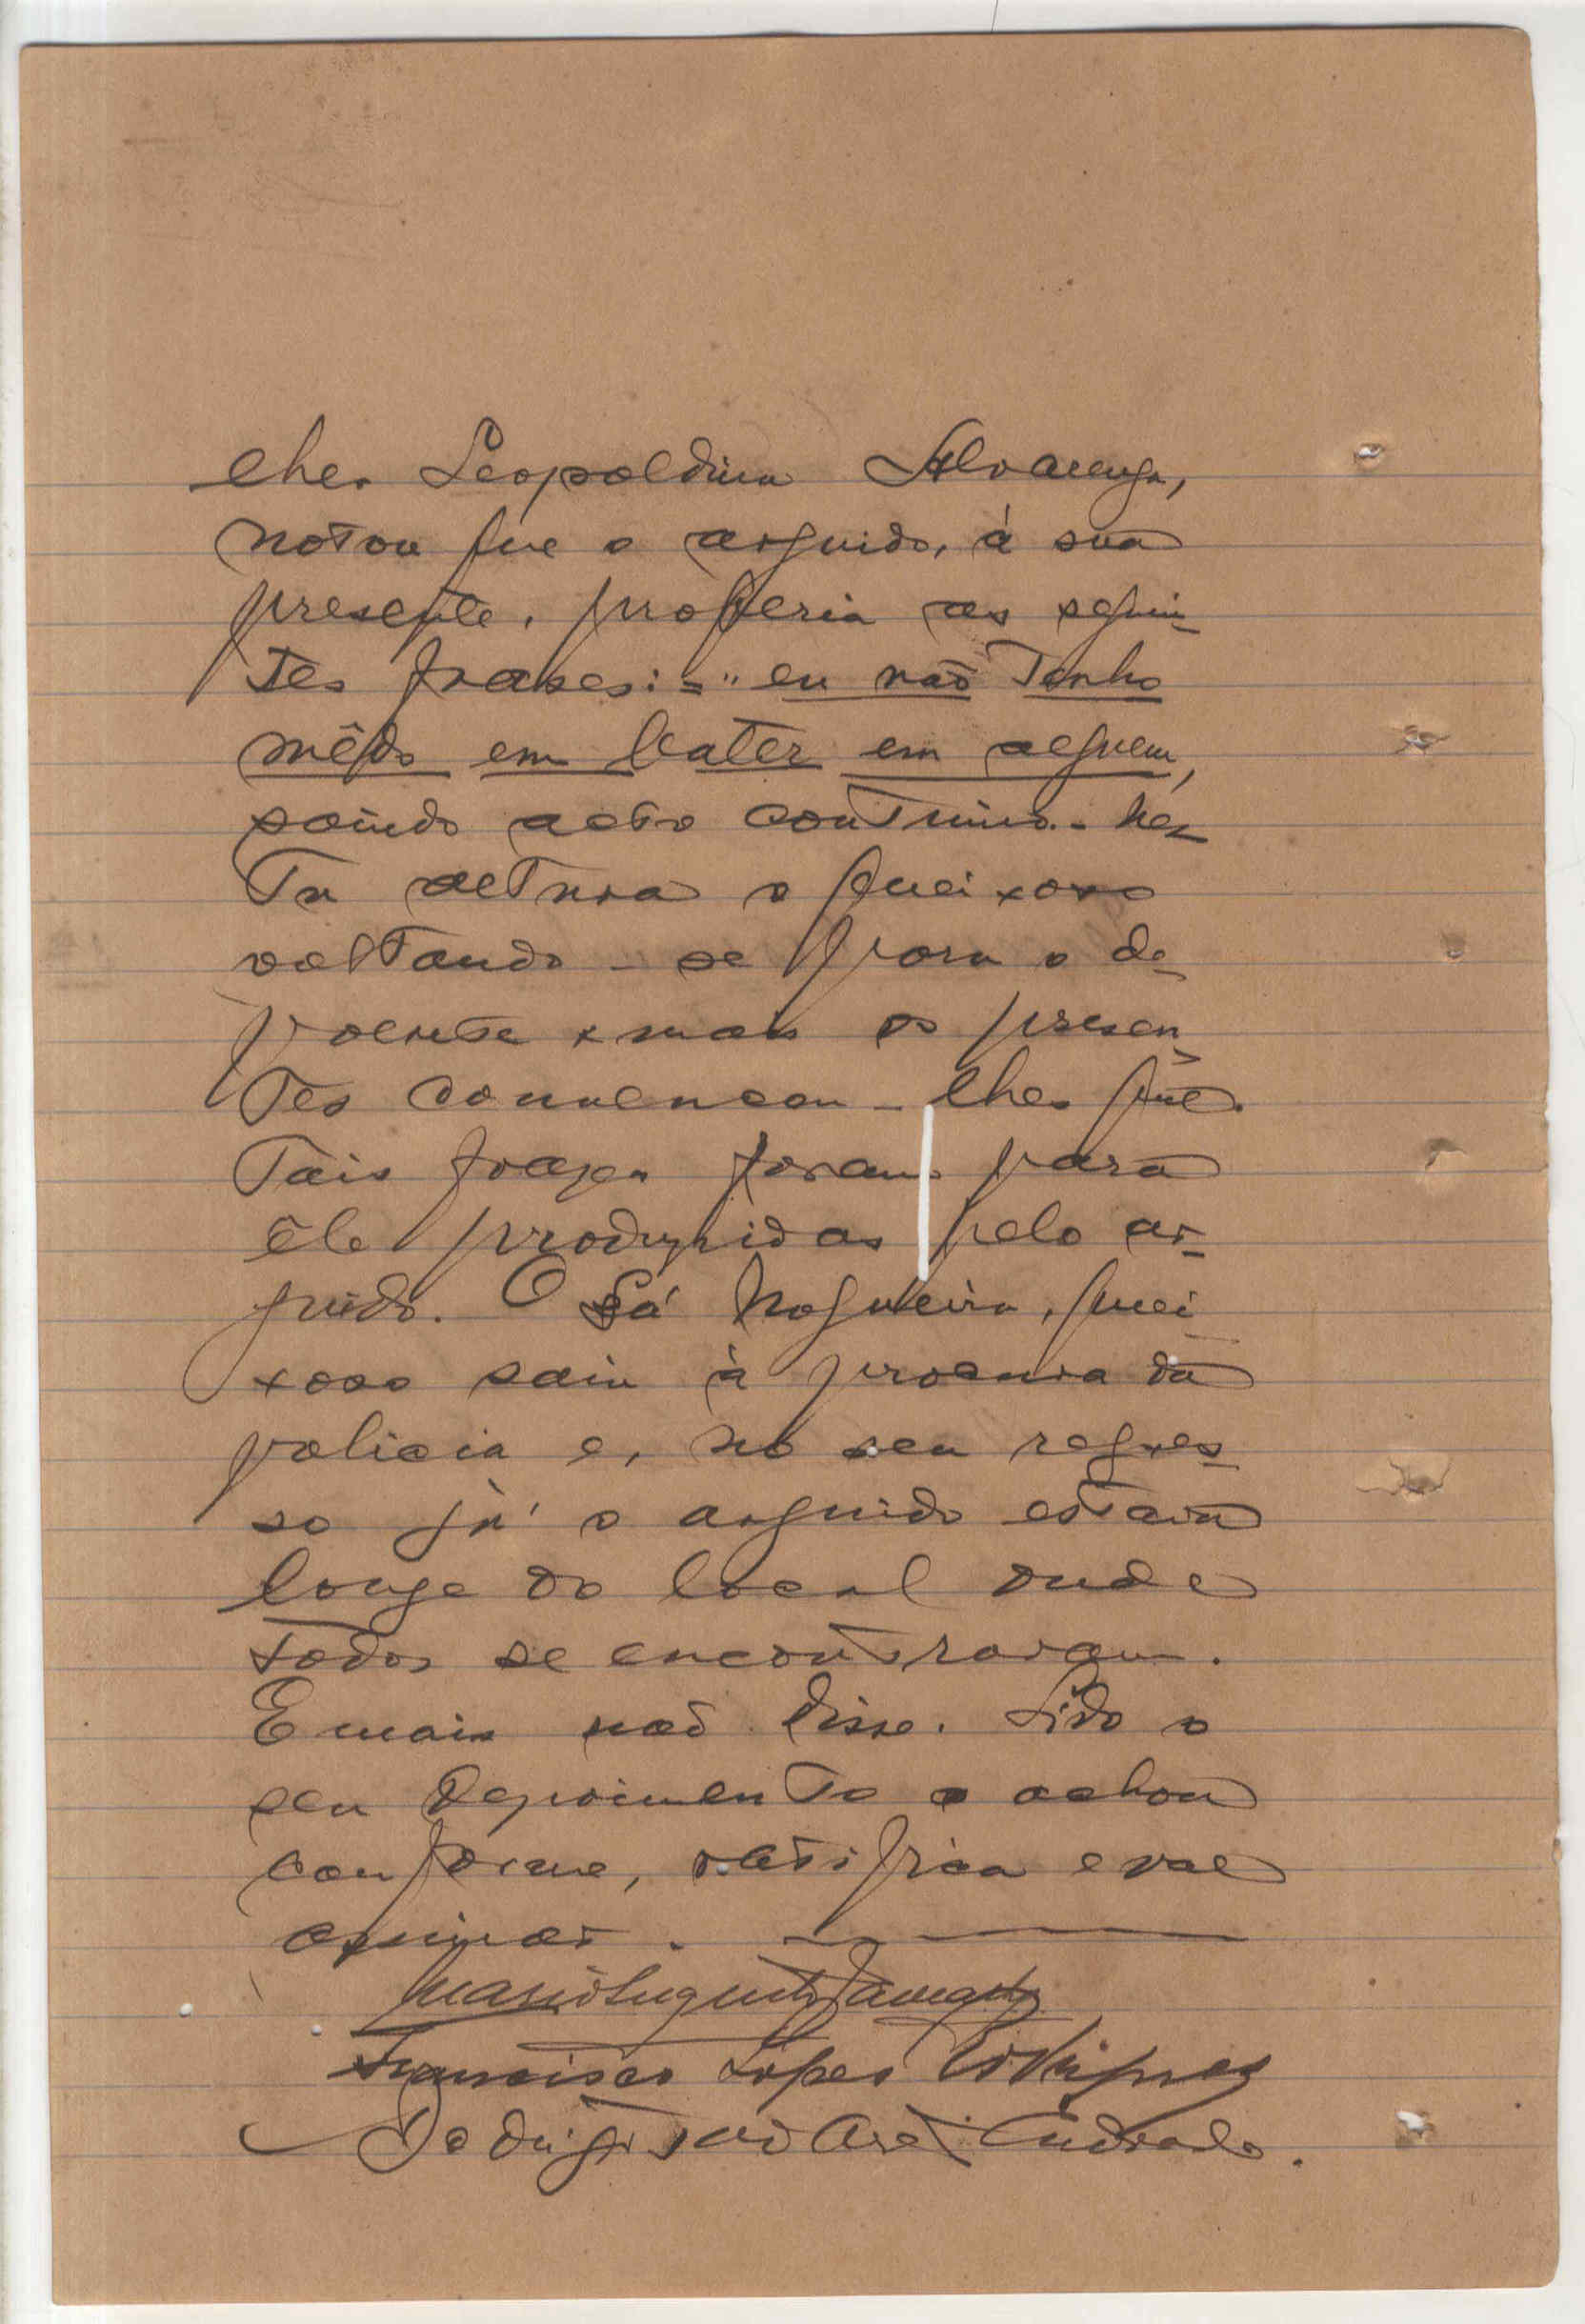 lher Leopoldina Alvarenga,
notou que o arguido, à sua
presente, proferia as seguin-
tes frases:= "eu não tenho
mêdo em bater em alguem,
saindo acto continuo. Nes-
ta altura o queixoso
voltando-se para o de-
poente e mais os presen-
tes convenceu-lhes que
tais frases foram para
êle produzidas pelo ar-
guido. O Sá Nogueira, quei-
xoso saiu à procura da
policia e, no seu regres-
so já o arguido estava
longe do local onde
todos se encontravam.
E mais não disse. Lido o
seu depoimento o achou
conforme, ratifica e vae
assinar.
Francisco Lopes Rodrigues
Andrade.